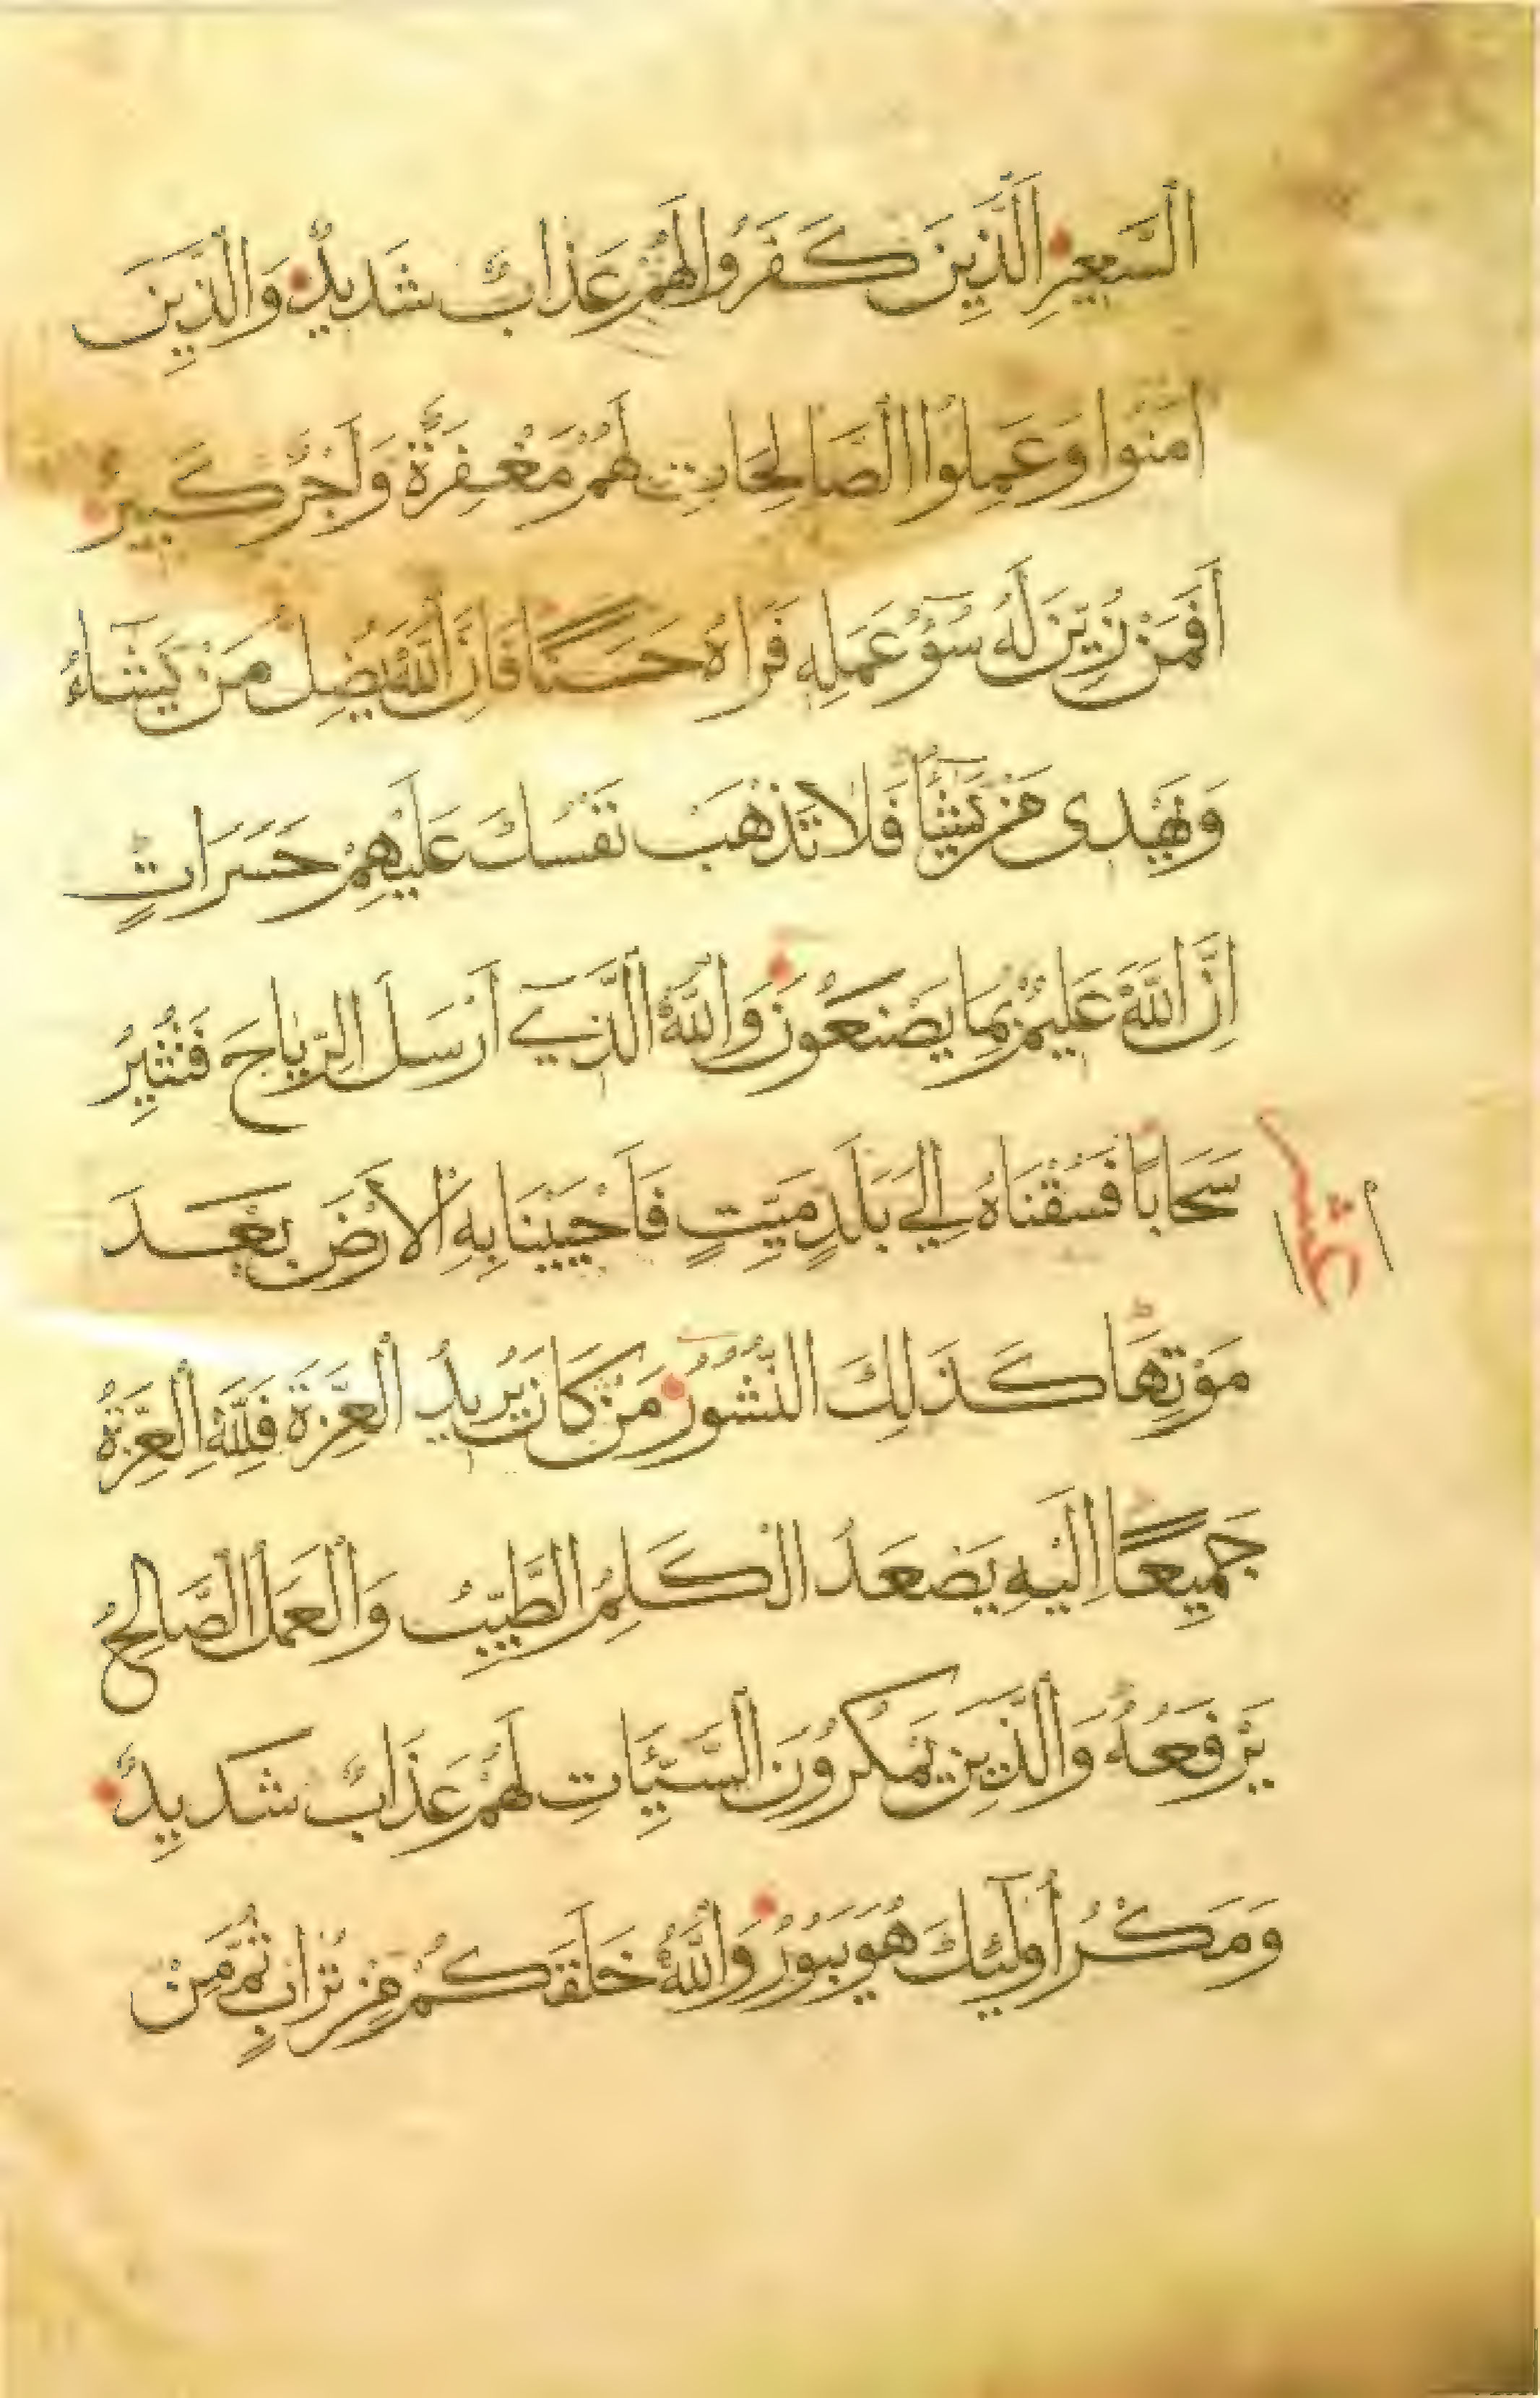 السَّعِيرِ الَّذِينَ كَفَرُوا لَهُمْ عَذَابٌ شَدِيدٌ وَالَّذِينَ
اٰمَنُوا وَعَمِلُوا الصَّالِحَاتِ لَهُمْ مَغْفِرَةٌ وَاَجْرٌ كَبِيرٌ
اَفَمَنْ زُيِّنَ لَهُ سُوٓءُ عَمَلِهِ فَرَاٰهُ حَسَنًا فَاِنَّ اللّٰهَ يُضِلُّ مَنْ يَشَٓاءُ
وَيَهْدِى مَنْ يَشَٓاءُ فَلَا تَذْهَبْ نَفْسُكَ عَلَيْهِمْ حَسَرَاتٍ
اِنَّ اللّٰهَ عَلِيمٌ بِمَا يَصْنَعُونَ وَاللّٰهُ الَّذِٓي اَرْسَلَ الرِّيَاحَ فَتُثِيرُ
سَحَابًا فَسُقْنَاهُ اِلَي بَلَدٍ مَيِّتٍ فَاَحْيَيْنَا بِهِ الْاَرْضَ بَعْدَ
مَوْتِهَا كَذَلِكَ النُّشُورُ مَنْ كَانَ يُرِيدُ الْعِزَّةَ فَلِلّٰهِ الْعِزَّةُ
جَمِيعًا اِلَيْهِ يَصْعَدُ الْكَلِمُ الطَّيِّبُ وَالْعَمَلُ الصَّالِحُ
يَرْفَعُهُ وَالَّذِينَ يَمْكُرُونَ السَّيِّئَاتِ لَهُمْ عَذَابٌ شَدِيدٌ
وَمَكْرُ اُولَٓئِكَ هُوَ يَبُورُ وَاللّٰهُ خَلَقَكُمْ مِنْ تُرَابٍ ثُمَّ مِنْ